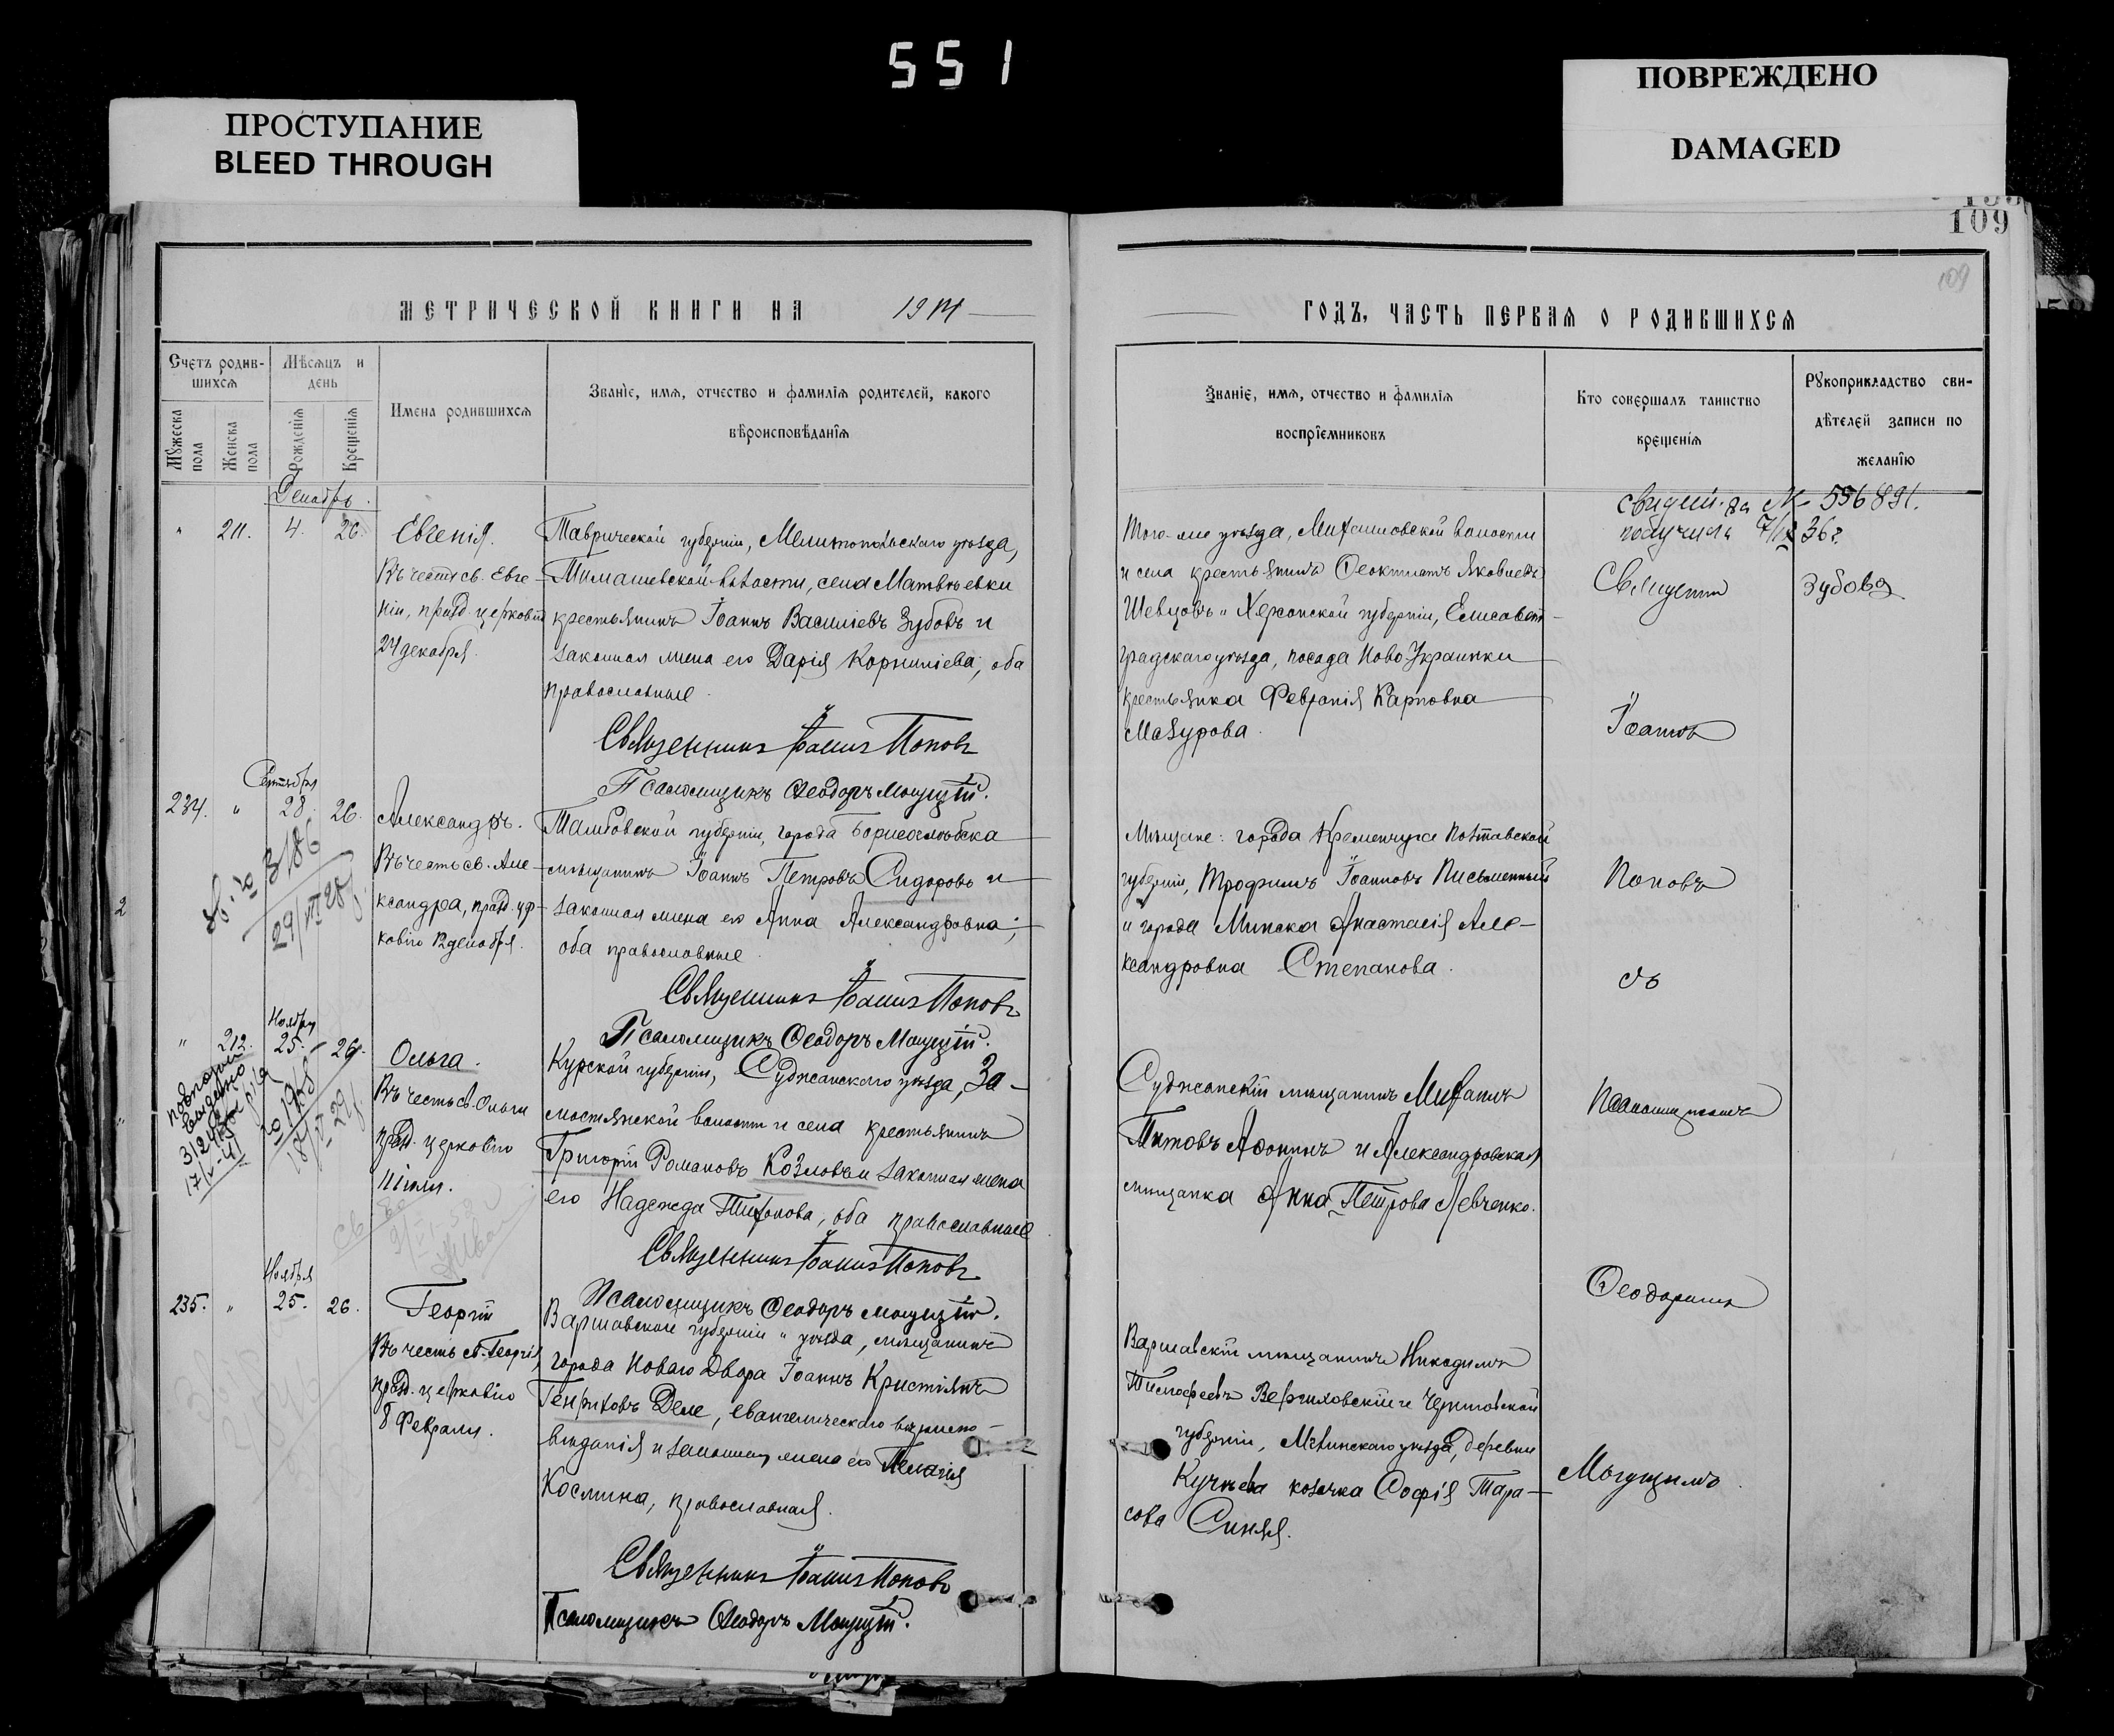 551
ПРОСТУПАНИЕ
BLEED THROUGH
ПОВРЕЖДЕНО
DAMAGED
109
109
МЕТРИЧЕСКОЙ КНИГИ НА 1914
Счетъ родив-
шихся
Мѣсяцъ и
день
Мужеска
пола
Женска
пола
Рожденія
Крещенія
Имена родившихся
Званіе, имя, отчество и фамилія родителей, какого
вѣроисповѣданія
Декабрь.
" 211. 4. 26.
Евгенія.
Въ честь св. Евге-
ніи, празд. церковію
24 декабря.
Таврической губерніи, Мелитопольскаго уѣзда,
Тимашевской волости, села Матвѣевки
крестьянинъ Іоаннъ Василіевъ Зубовъ и
законная жена его Дарія Корниліева, оба
православные.
Священникъ Іоаннъ Поповъ
Псаломщикъ Ѳеодоръ
Сентября
234. " 28. 26.
Александръ.
Въ честь св. Але-
ксандра, празд. цер-
ковію 12 декабря.
Тамбовской губерніи, города Борисоглѣбска
мѣщанинъ Іоаннъ Петровъ Сидоровъ и
законная жена его Анна Александровна;
оба православные.
Священникъ Іоаннъ Поповъ
Псаломщикъ Ѳеодоръ
3186
Ноября
" 212. 25. 26.
Ольга.
Въ честь св. Ольги
празд. церковію
11 іюля.
Курской губерніи, Суджанскаго уѣзда, За-
мостянской волости и села крестьянинъ
Григорій Романовъ Козловъ и законная жена
его Надежда Тихонова, оба православные.
Священникъ Іоаннъ Поповъ
Псаломщикъ Ѳеодоръ
Ноября
235. " 25. 26.
Георгій
Въ честь св. Георгія,
празд. церковію
8 Февраля.
Варшавской губерніи " уѣзда, мѣщанинъ
города Новаго Двора Іоаннъ Кристіянъ
Генриховъ Деле, евангелическаго вѣроиспо-
вѣданія и законная жена его Пелагія
Космина, православная.
Священникъ Іоаннъ Поповъ
Псаломщикъ Ѳеодоръ
ГОДЪ, ЧАСТЬ ПЕРВАЯ О РОДИВШИХСЯ
Званіе, имя, отчество и фамилія
воспріемниковъ
Кто совершалъ таинство
крещенія
Рукоприкладство сви-
дѣтелей записи по
желанію
Свидет. за № 556891.
получила 36 г.
Зубова
Того-же уѣзда, волости
и села крестьянинъ Ѳеоктистъ Яковлевъ
Шевцовъ и Херсонской губерніи, Елисавет-
градскаго уѣзда, посада Ново Украинки
крестьянка Февронія Карповна
Мазурова.
Мѣщане: города Кременчуга Полтавской
губерніи, Трофимъ Іоанновъ Письменный
и города Минска Анастасія Але-
ксандровна Степанова.
Суджанскій мѣщанинъ Михаилъ
Титовъ Аѳонинъ и Александровская
мѣщанка Анна Петрова Левченко.
Варшавскій мѣщанинъ Никодимъ
Тимофеевъ и Черниговской
губерніи, Мглинскаго уѣзда, деревни
козачка Софія Тара-
сова Синяя.
Священникъ
Іоаннъ
Поповъ
съ
Псаломщикомъ
Ѳеодоромъ